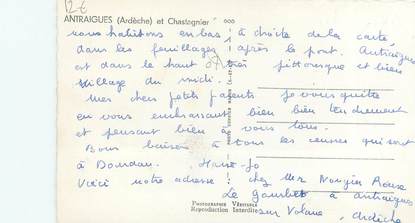 12€
ANTRAIGUES (Ardèche) et Chastagnier
nous habitons en bas à droite de la carte
dans les feuillages après le pont. Antraigues
est dans le haut très pittoresque et bien
village du midi.
Mes chers petits parents je vous quitte
en vous embrassant bien bien tendrement
et pensant bien à vous tous.
Bons baisers à tous les ceusses qui sont
à Dourdan. Marie-Jo
Voici notre adresse : chez Mez
Le à antraigues
sur Volane, ardèche
PHOTOGRAPHIE VÉRITABLE
Reproduction Interdite